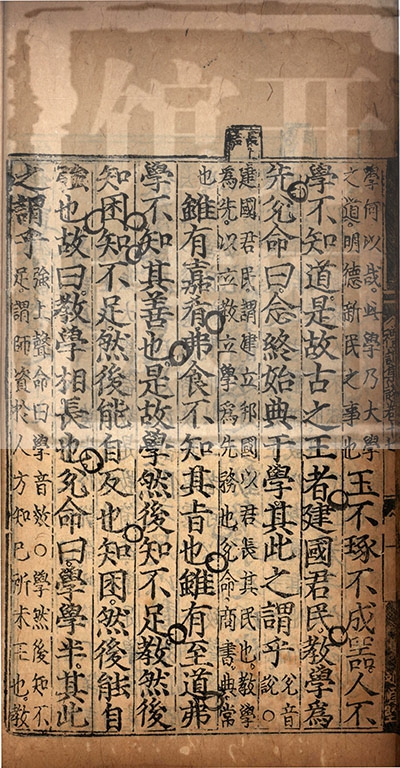 長嘉
學何以哉此學乃大學
之道明德新民之事也
玉不琢不成噐人不
學不知道是故古之王者建國君民教學爲
先兊命曰念終始典于學其此之謂乎
兊音
說○
建國君民謂建立邦國以君長其民也教學
爲先以立教立學爲先務也兊命商書典常
也
雖有嘉肴弗食不知其旨也雖有至道弗
學不知其善也是故學然後知不足教然後
知困知不足然後能自反也知困然後能自
強也故曰教學相長也兊命曰學學半其此
之謂乎
強上聲命曰學音效○學然後知不
足謂師資於人方知己所未至也教